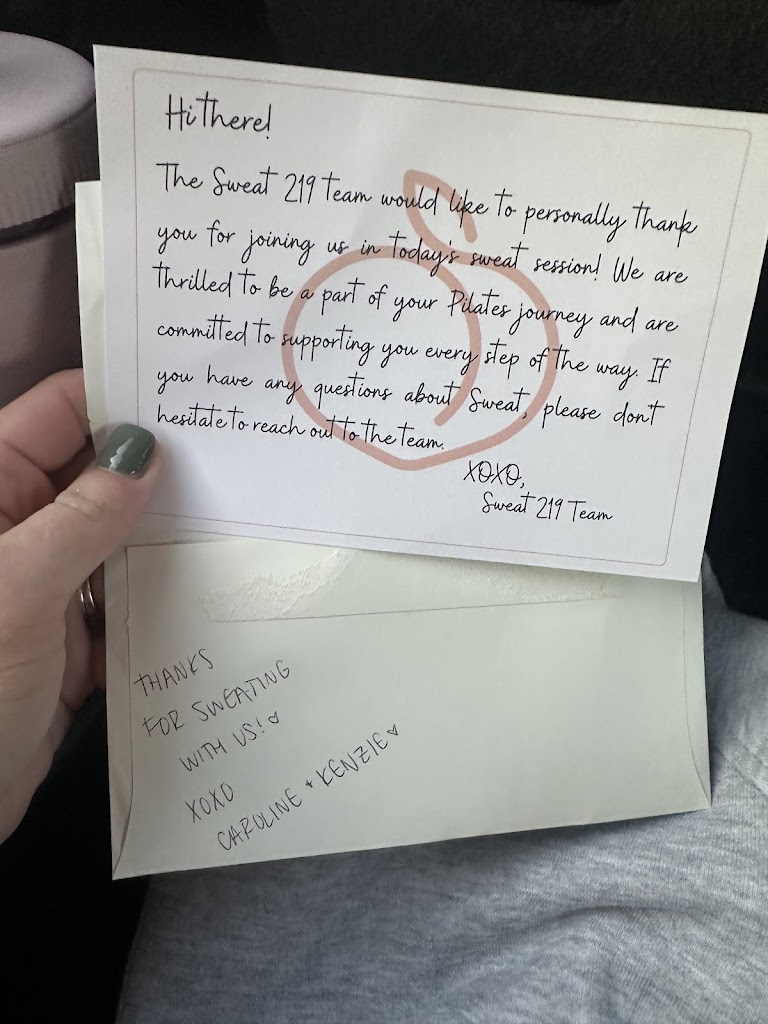 Hi there!
The Sweat 219 Team would like to personally thank
you for joining us in today's sweat session! We are
thrilled to be a part of your Pilates journey and are
committed to supporting you every step of the way. If
you have any questions about Sweat, please don't
hesitate to reach out to the team.
XOXO,
Sweat 219 Team
THANKS
FOR SWEATING
WITH US! ♡
XOXO
CAROLINE + KENZIE ♡